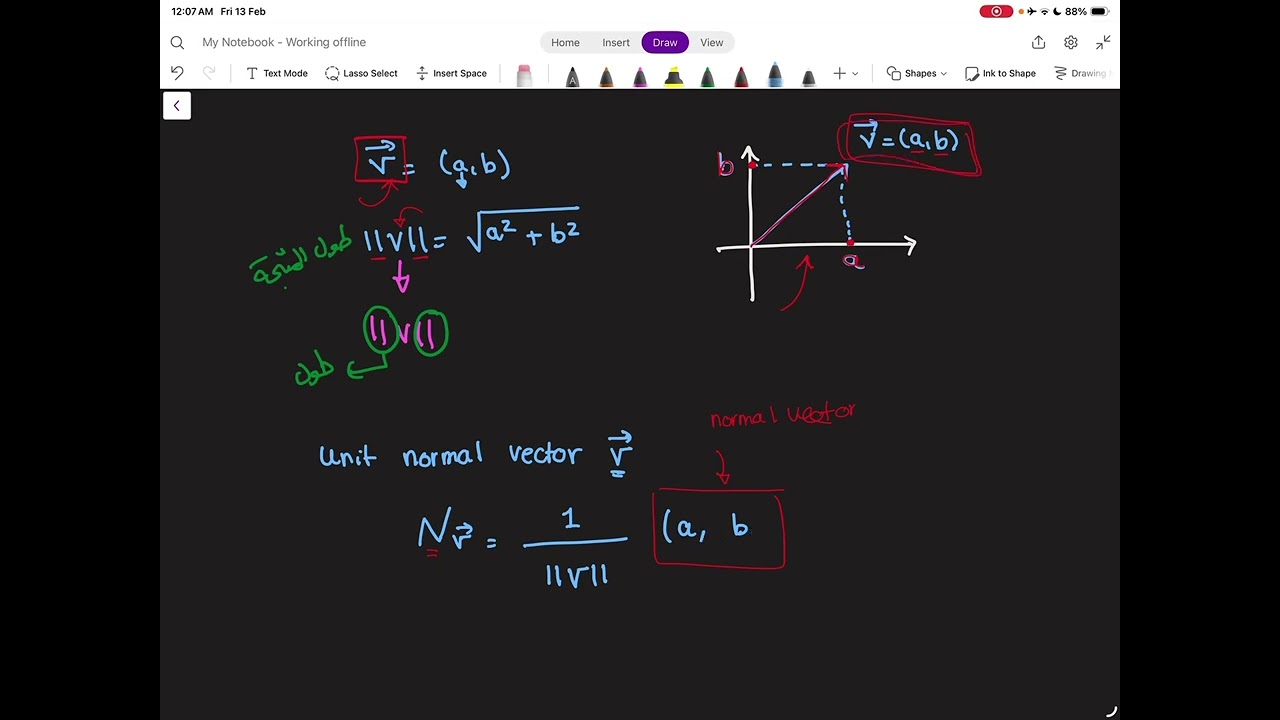 12:07 AM Fri 13 Feb
88%
My Notebook - Working offline
Home Insert Draw View
Text Mode Lasso Select Insert Space Shapes Ink to Shape Drawing
v⃗ = (a,b)
طول المتجه ||v|| = √(a² + b²)
||v||
طول
v⃗ = (a,b)
b
a
normal vector
unit normal vector v⃗
N v⃗ = 1/||v|| (a, b